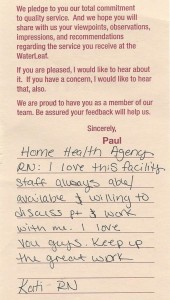 We pledge to you our total commitment
to quality service. And we hope you will
share with us your viewpoints, observations,
impressions, and recommendations
regarding the service you receive at the
WaterLeaf.
If you are pleased, I would like to hear about
it. If you have a concern, I would like to hear
that, also.
We are proud to have you as a member of our
team. Be assured your feedback will help us.
Sincerely,
Paul
Home Health Agency
RN: I love this facility
staff always able/
available & willing to
discuss pt & work
with me. I love
you guys. Keep up
the great work
Kati - RN